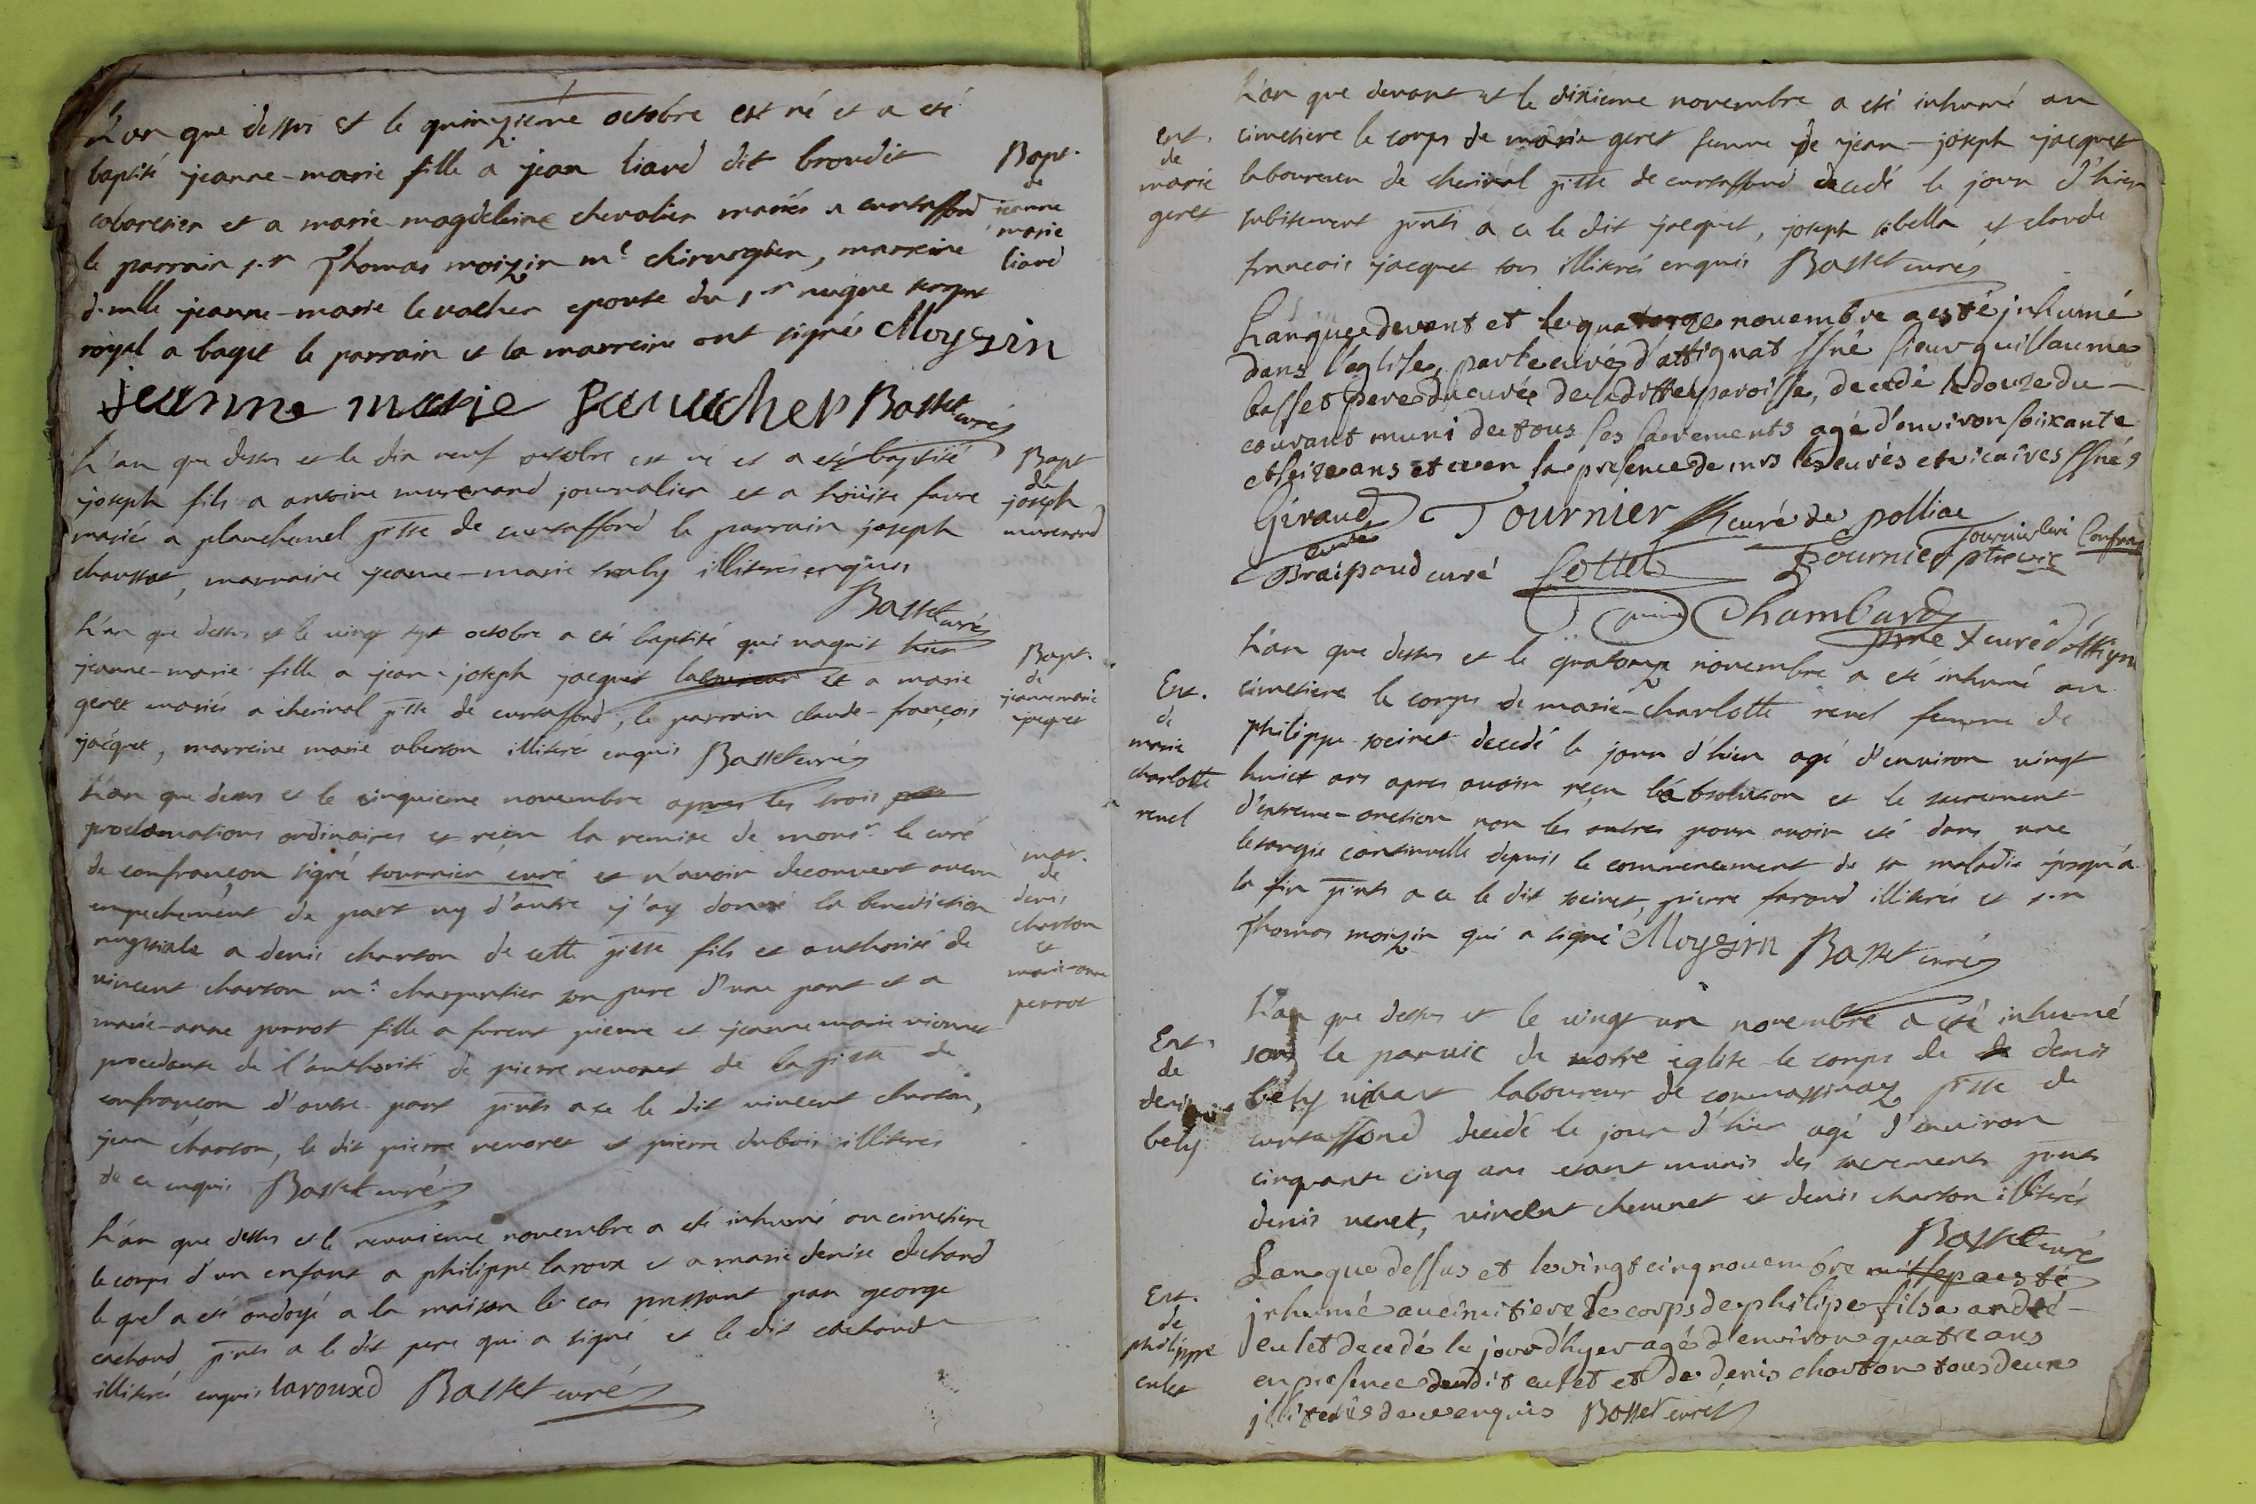 L'an que dessus et le quinzieme octobre est né et a eté
baptisé jeanne-marie fille a jean liard dit broudit
cabaretier et a marie magdeleine chevalier mariés a curtaffond
le parrain s.r Thomas moizin m.e chirurgien, marreine
d.mlle jeanne-marie levacher epouse du s.r sergent
royal a bagié le parrain et la marreine ont signés Moyzin
jeanne marie Basset curé
Bapt.
de
jeanne
marie
liard
L'an que dessus et le dix neuf octobre est né et a eté baptisé
joseph fils a antoine murenand journalier et a loüise favre
mariés a planchemel p.sse de curtaffond le parrain joseph
chaussat, marraine jeanne-marie illiterés enquis
Basset curé
Bapt
de
joseph
murenand
L'an que dessus et le vingt sept octobre a eté baptisé qui naquit hier
jeanne-marie fille a jean-joseph jacquet laboureur et a marie
geret mariés a cherinal p.sse de curtaffond, le parrain claude-françois
jacquet, marreine marie illiterés enquis Basset curé
Bapt.
de
jeanne marie
jacquet
L'an que dessus et le cinquieme novembre apres les trois
proclamations ordinaires et reçu la remise de mons.r le curé
de confrançon signé tournier curé et n'avoir decouvert aucun
empechement de part ny d'autre j'ay donné la benediction
nuptiale a denis charton de cette p.sse fils et authorisé de
vincent charton m.e charpentier son pere d'une part et a
marie-anne perrot fille a furent pierre et jeanne marie vionnet
procedante de l'authorité de pierre revoret de la p.sse de
confrançon d'autre part p.nts a ce le dit vincent charton,
jean charton, le dit pierre revoret et pierre dubois illiterés
de ce enquis Basset curé
mar.
de
denis
charton
et
marie-anne
perrot
L'an que dessus et le neuvieme novembre a eté inhumé au cimetiere
le corps d'un enfant a philippe laroux et a marie denise
le quel a eté ondoyé a la maison le cas pressant par george
p.nts a le dit pere qui a signé et le dit
illiteré enquis larouxd Basset curé
L'an que devant et le dixieme novembre a eté inhumé au
cimetiere le corps de marie geret femme de jean-joseph jacquet
laboureur de cherinal p.sse de curtaffond decedé le jour d'hier
subitement p.nts a ce le dit jacquet, joseph et claude
francois jacquet tous illiterés enquis Basset curé
ent.
de
marie
geret
Lanquedevant et le quatorze novembre a esté jnhumé
dans l'eglise par le curé d'attignat ssné sieur guillaume
basset pere du curé de laditte paroisse, decedé le douze du
courant muni de tous ses sacrements agé d'environ soixante
et seize ans et ce en la presence de mrs les curés et vicaires ssnés
Giraud curé Tournier curé de polliac
Braipoud curé Cottet Tournier ptre vic
Chambard
ptre & curé d'attign
L'an que dessus et le quatorze novembre a eté inhumé au
cimetiere le corps de marie-charlotte revel femme de
philippe decedé le jour d'hier agé d'environ vingt
huict ans apres avoir reçu l'absolution et le sacrement
d'extreme-onction non les autres pour avoir eté dans une
letargie continuelle depuis le commencement de sa maladie jusqu'a
la fin p.nts a ce le dit pierre farand illiterés et s.r
Thomas moizin qui a signé Moyzin Basset curé
Ent.
de
marie
charlotte
revel
L'an que dessus et le vingt un novembre a eté inhumé
sous le parvic de notre eglise le corps de denis
bely vivant laboureur de p.sse de
curtaffond decedé le jour d'hier agé d'environ
cinquante cinq ans etant munis des sacrements p.nts
denis veret, vincent chevret et denis charton illiterés
Basset curé
Ent.
de
denis
bely
Lan que dessus et le vingt cinq novembre a esté
jnhumé au cimitiere le corps de philipe fils a andré
eulet decedé le jour d'hyer agé d'environ quatre ans
en presence dudit eulet et de denis charton tous deux
jlliterés de ce enquis Basset curé
Ent.
de
philippe
eulet